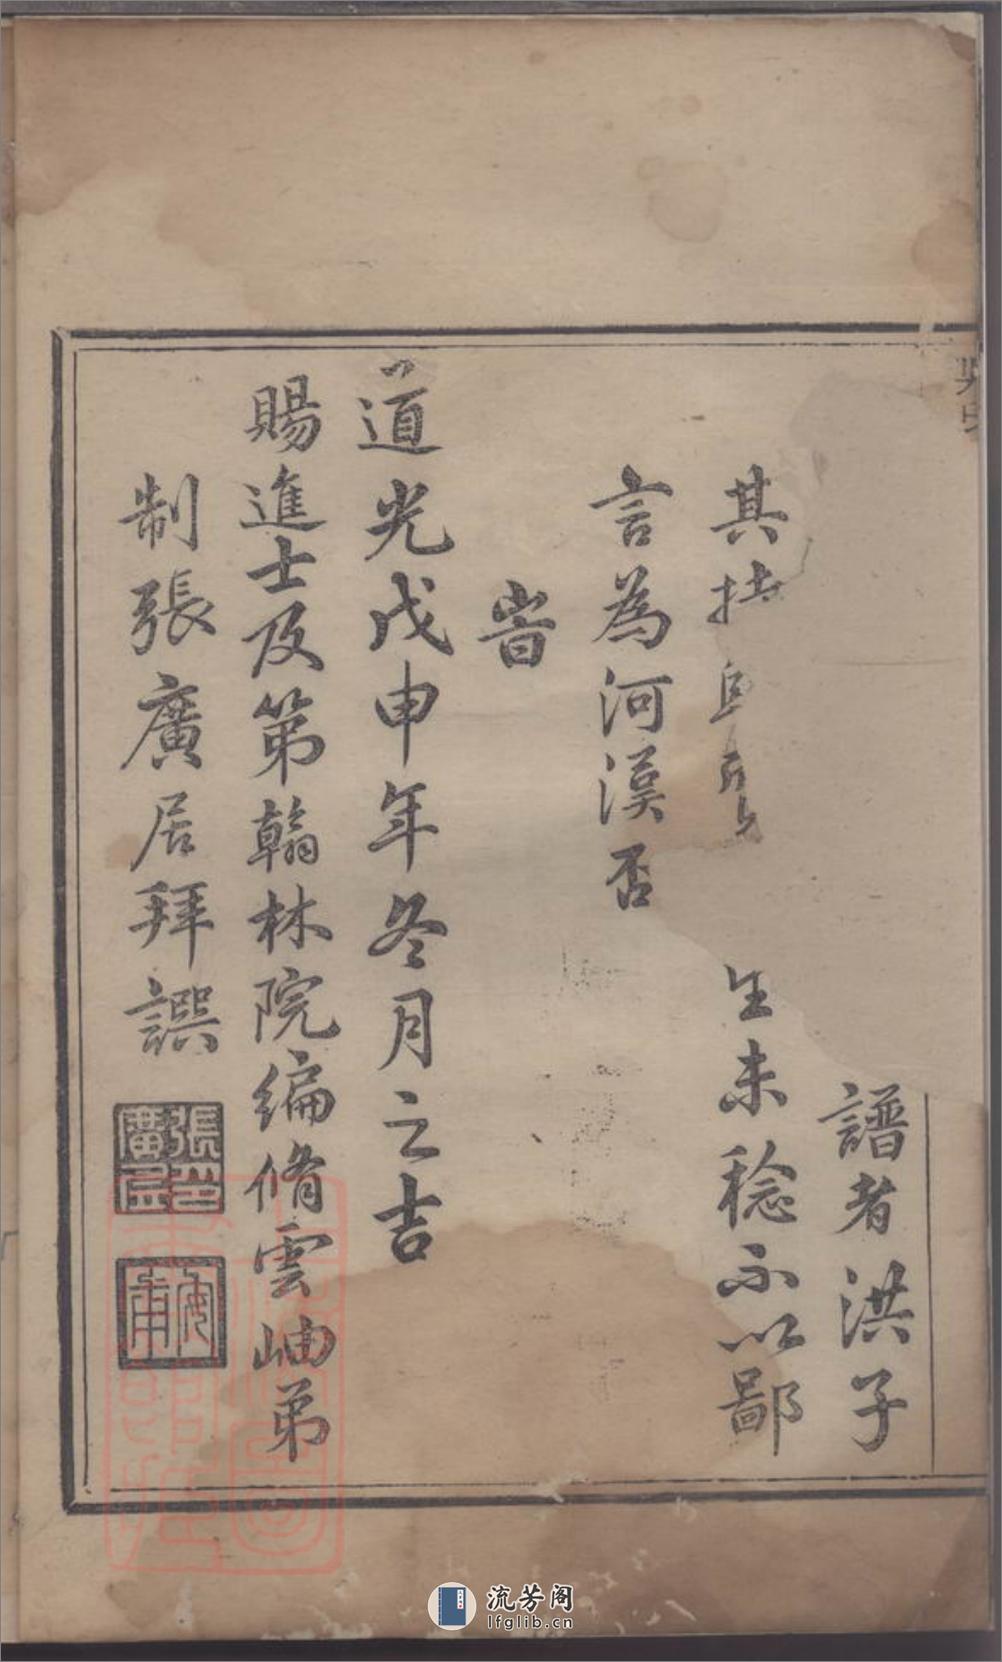 譜者洪子
其 生未稔不以鄙
言為河漢否
旹
道光戊申年冬月之吉
賜進士及第翰林院編脩雲岫弟
制張廣居拜譔
張印廣居
流芳阁
lfglib.cn